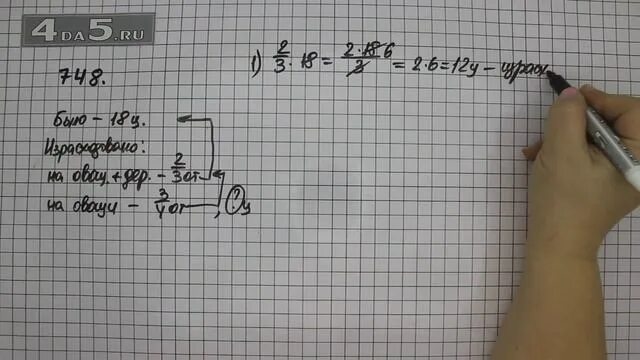 4DA5.RU
748.
Было – 18 ц.
Израсходовано:
на овощ. + дер. – 2/3 от
на овощи – 3/4 от , ? ц
1) 2/3 · 18 = 2·18 6/3 = 2·6 = 12ц –